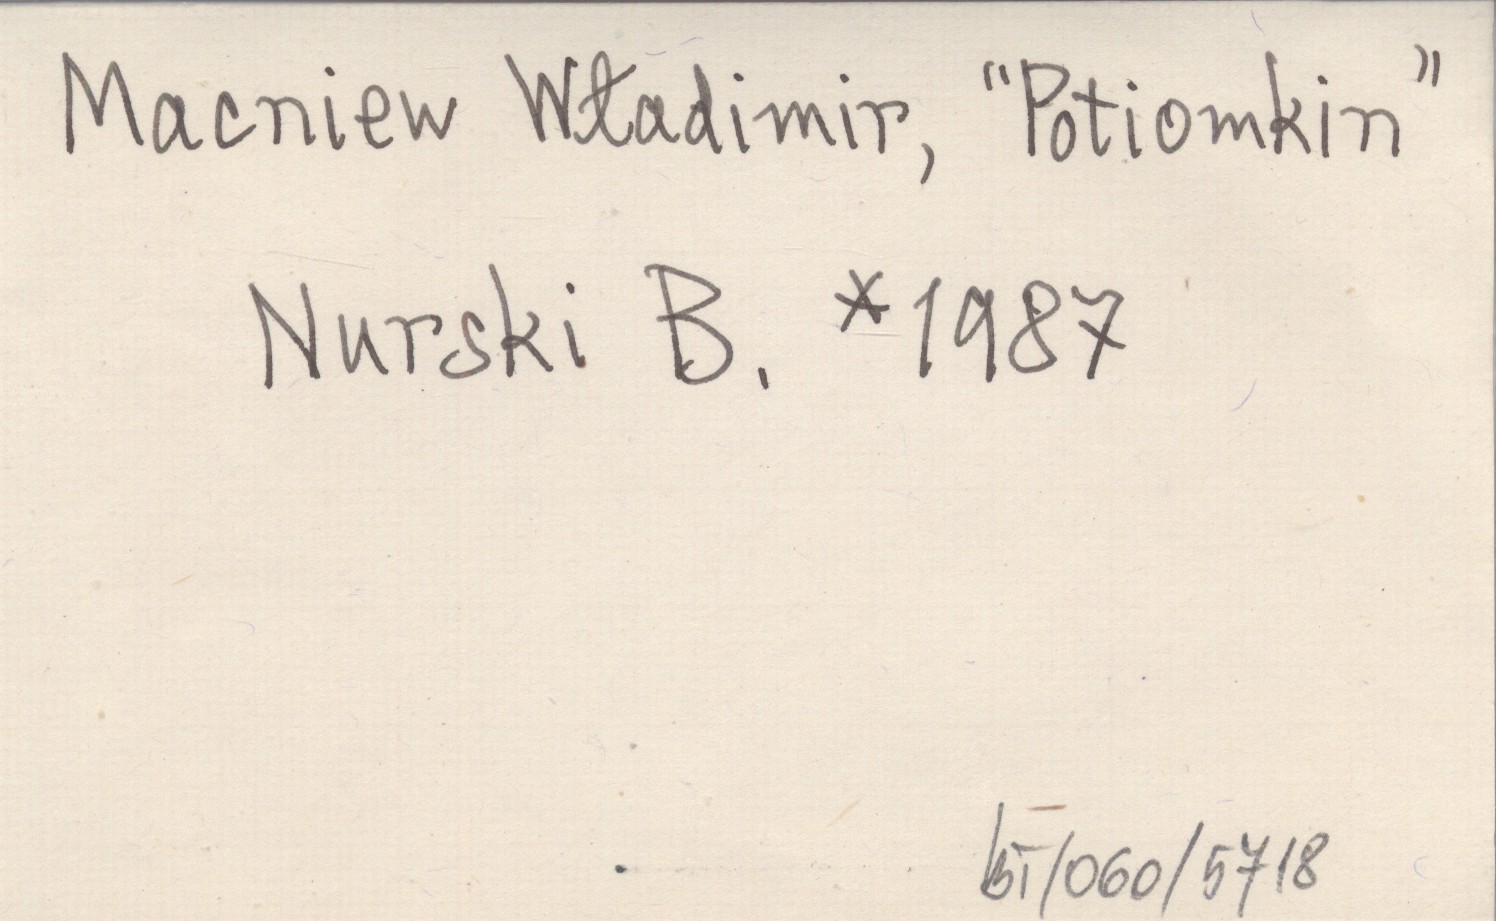 Macniew Władimir, "Potiomkin"
Nurski B. *1987
bT/060/5718